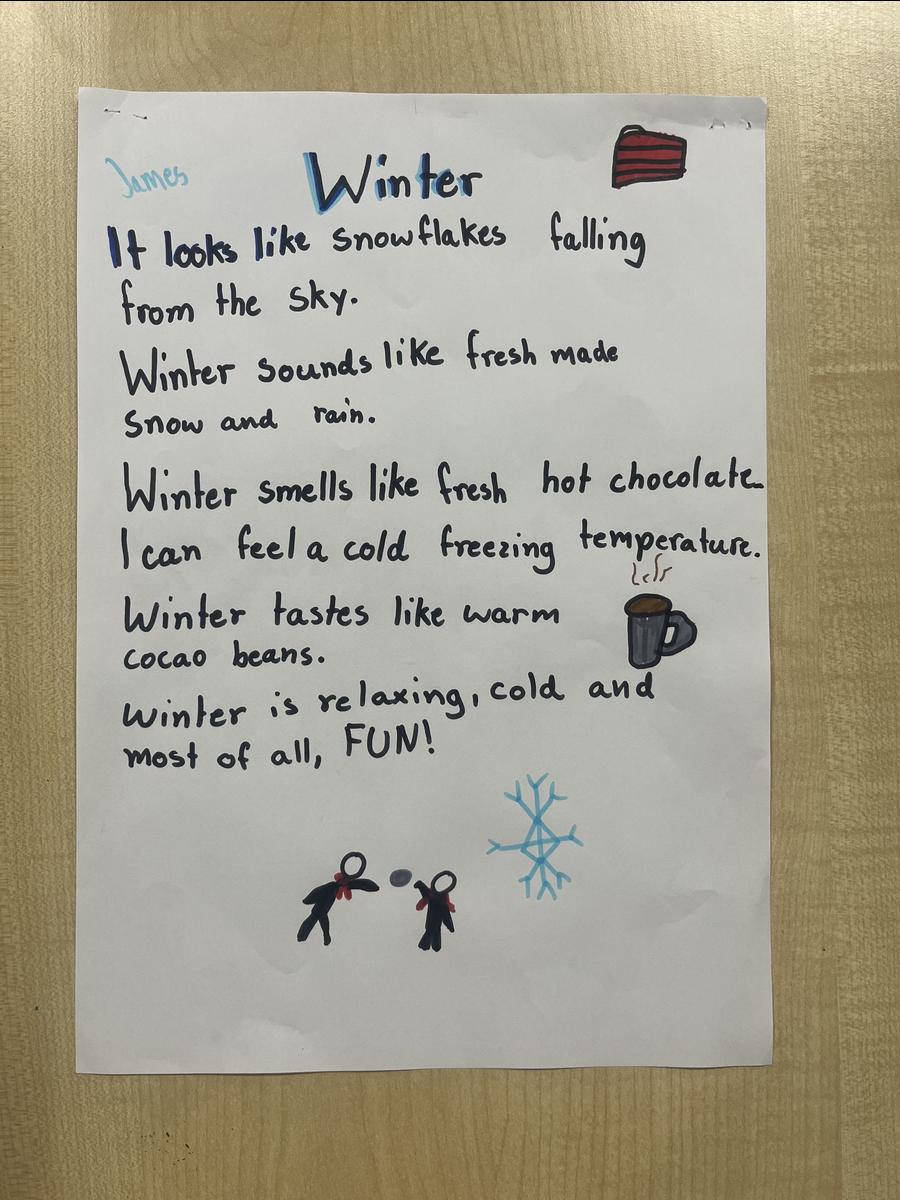 James
Winter
It looks like snowflakes falling
from the sky.
Winter sounds like fresh made
snow and rain.
Winter smells like fresh hot chocolate.
I can feel a cold freezing temperature.
Winter tastes like warm
cocao beans.
Winter is relaxing, cold and
most of all, FUN!